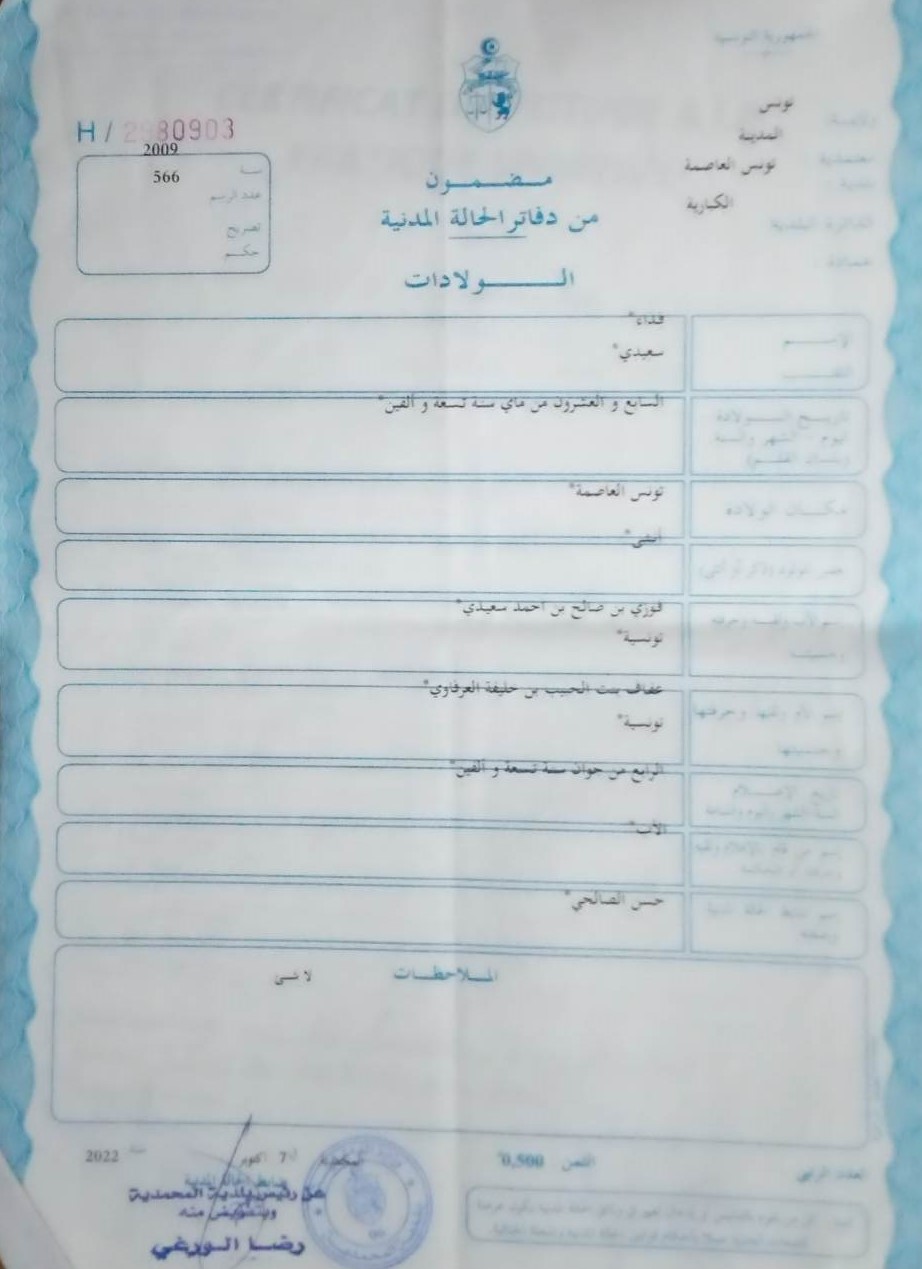 الجمهورية التونسية
تونس
المدينة
تونس العاصمة
الكبارية
الدائرة البلدية
H / 2980903
2009
سنة
566
عدد الرسم
تصريح
حكم
مضمون
من دفاتر الحالة المدنية
الولادات
الاسم
اللقب
فداء*
سعيدي*
تاريخ الولادة
اليوم الشهر والسنة
(بلسان القلم)
السابع و العشرون من ماي سنة تسعة و ألفين*
مكان الولادة
تونس العاصمة*
جنس المولود (ذكر أو أنثى)
أنثى*
فوزي بن صالح بن أحمد سعيدي*
تونسية*
عفاف بنت الحبيب بن خليفة العرفاوي*
تونسية*
تاريخ الإعلام
الرابع من جوان سنة تسعة و ألفين*
الأب*
حسن الصالحي*
الملاحظات
لا شئ
العدد الرتبي
الثمن 0,500*
المحمدية
7 أكتوبر
سنة 2022
ضابط الحالة المدنية
عن رئيس بلدية المحمدية
وبتفويض منه
رضا الورغي